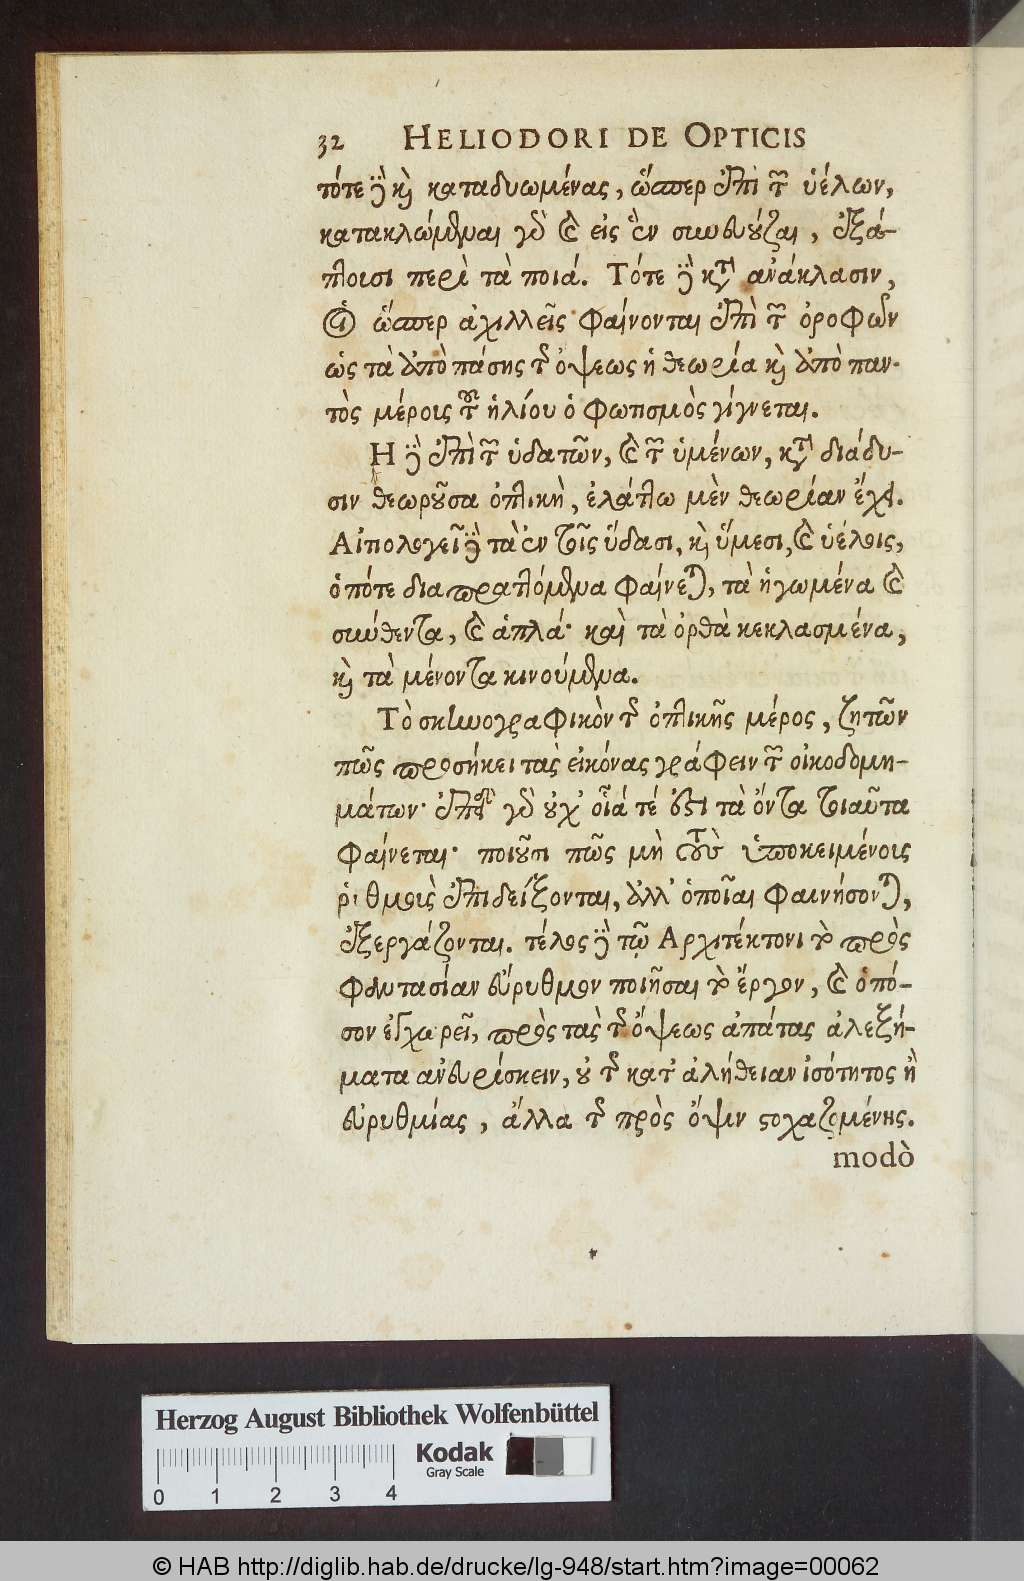 32 HELIODORI DE OPTICIS
τότε δὲ καὶ καταδυωμένας, ὥσπερ ἐπὶ τῶν ὑέλων,
κατακλώμεναι γὰρ καὶ εἰς ἓν συνεύζαι, ἐξά-
πτουσι περὶ τὰ ποιά. Τότε δὲ κατὰ ἀνάκλασιν,
ὥσπερ ἀχιλλεῖς φαίνονται ἐπὶ τῶν ὀροφῶν
ὡς τὰ ἀπὸ πάσης τῆς ὄψεως ἡ θεωρία καὶ ἀπὸ παν-
τὸς μέροις τοῦ ἡλίου ὁ φωτισμὸς γίγνεται.
Η δὲ ἐπὶ τῶν ὑδατῶν, καὶ τῶν ὑμένων, κατὰ διάδυ-
σιν θεωροῦσα ὀπτικὴ, ἐλάττω μὲν θεωρίαν ἔχει.
Αἰτιολογεῖ δὲ τὰ ἐν τοῖς ὕδασι, καὶ ὕμεσι, καὶ ὑέλοις,
ὁπότε διαπραττόμενα φαίνεται, τὰ ἡγωμένα καὶ
συνθεντα, καὶ ἁπλά· καὶ τὰ ὀρθὰ κεκλασμένα,
καὶ τὰ μένοντα κινούμενα.
Τὸ σκηνογραφικὸν τῆς ὀπτικῆς μέρος, ζητῶν
πῶς προσήκει τὰς εἰκόνας γράφειν τῶν οἰκοδομη-
μάτων· ἐπειδὴ γὰρ οὐχ οἷά τέ ἐστι τὰ ὄντα τοιαῦτα
φαίνεται· ποιοῦσι πῶς μὴ τοὺς ὑποκειμένοις
ῥιθμοις ἐπιδείξονται, ἀλλ' ὁποῖαι φαινήσονται,
ἐξεργάζονται. τέλος δὲ τῷ Αρχιτέκτονι τὸ πρὸς
φαντασίαν εὔρυθμον ποιῆσαι τὸ ἔργον, καὶ ὁπό-
σον ἐγχωρεῖ, πρὸς τὰς τῆς ὄψεως ἀπάτας ἀλεξή-
ματα ἀνευρίσκειν, οὐ τῆς κατ' ἀλήθειαν ἰσότητος ἢ
εὐρυθμίας, ἄλλα τῆς πρὸς ὄψιν στοχαζομένης.
modò
Herzog August Bibliothek Wolfenbüttel
Kodak
Gray Scale
0 1 2 3 4
© HAB http://diglib.hab.de/drucke/lg-948/start.htm?image=00062